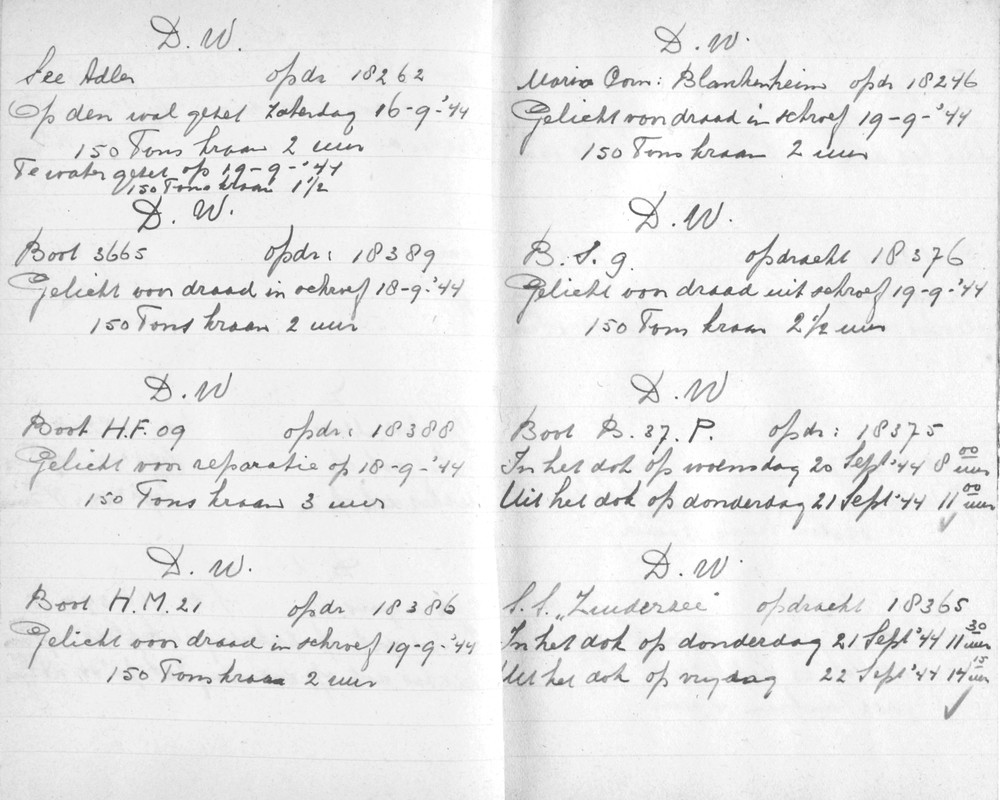 D. W.
See Adler opdr 18262
Op den wal gezet Zaterdag 16-9-'44
150 Tons kraan 2 uur
Te water gezet op 19-9-'44
150 Tons kraan 1½
D. W.
Boot 3665 opdr: 18389
Gelicht voor draad in schroef 18-9-'44
150 Tons kraan 2 uur
D. W
Boot H.F. 09 opdr: 18388
Gelicht voor reparatie op 18-9-'44
150 Tons kraan 3 uur
D. W.
Boot H.M. 21 opdr 18386
Gelicht voor draad in schroef 19-9-'44
150 Tons kraan 2 uur
D. W.
Maria Corn: Blankenheim opdr 18246
Gelicht voor draad in schroef 19-9-'44
150 Tons kraan 2 uur
D. W.
B. S. g. opdracht 18376
Gelicht voor draad uit schroef 19-9-'44
150 Tons kraan 2½ uur
D. W
Boot B. 37. P. opdr: 18375
In het dok op woensdag 20 Sept '44 8 00 uur
Uit het dok op donderdag 21 Sept '44 11 00 uur
D. W.
S. S. „Zuiderzee" opdracht 18365
In het dok op donderdag 21 Sept '44 11 30 uur
Uit het dok op vrijdag 22 Sept '44 14 15 uur